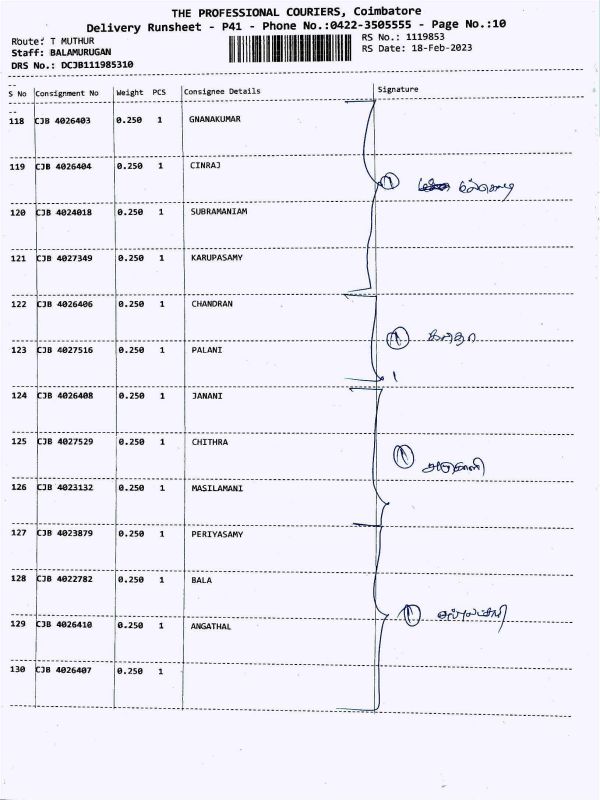 THE PROFESSIONAL COURIERS, Coimbatore
Delivery Runsheet - P41 - Phone No.:0422-3505555 - Page No.:10
Route: T MUTHUR
RS No.: 1119853
Staff: BALAMURUGAN
RS Date: 18-Feb-2023
DRS No.: DCJB111985310
S No Consignment No Weight PCS Consignee Details Signature
118 CJB 4026403 0.250 1 GNANAKUMAR
119 CJB 4026404 0.250 1 CINRAJ
120 CJB 4024018 0.250 1 SUBRAMANIAM
121 CJB 4027349 0.250 1 KARUPASAMY
122 CJB 4026406 0.250 1 CHANDRAN
123 CJB 4027516 0.250 1 PALANI
124 CJB 4026408 0.250 1 JANANI
125 CJB 4027529 0.250 1 CHITHRA
126 CJB 4023132 0.250 1 MASILAMANI
127 CJB 4023879 0.250 1 PERIYASAMY
128 CJB 4022782 0.250 1 BALA
129 CJB 4026410 0.250 1 ANGATHAL
130 CJB 4026407 0.250 1